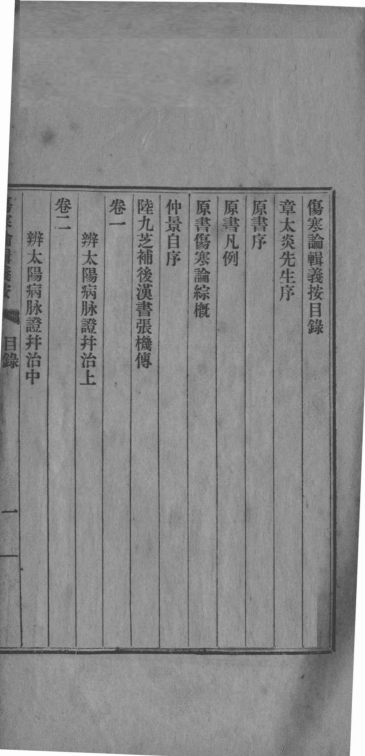 傷寒論輯義按目錄
章太炎先生序
原書序
原書凡例
原書傷寒論綜概
仲景自序
陸九芝補後漢書張機傳
卷一
辨太陽病脉證并治上
卷二
辨太陽病脉證并治中
傷寒論輯義按 目錄 一